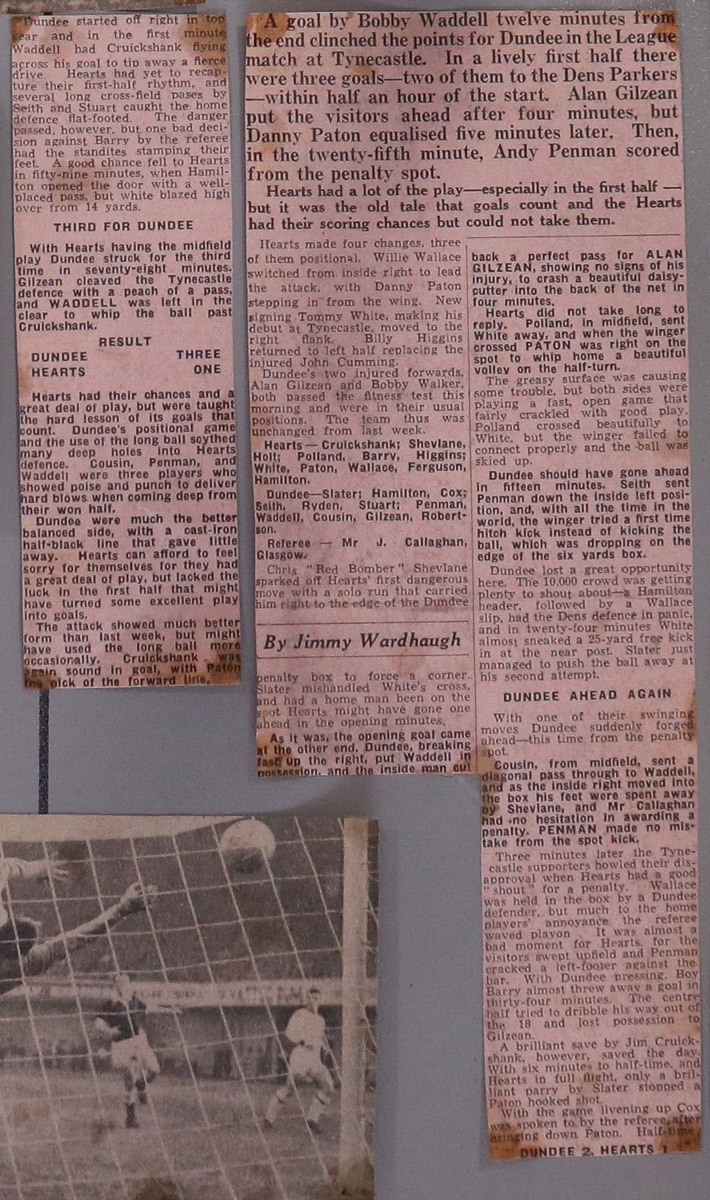 A goal by Bobby Waddell twelve minutes from
the end clinched the points for Dundee in the League
match at Tynecastle. In a lively first half there
were three goals—two of them to the Dens Parkers
—within half an hour of the start. Alan Gilzean
put the visitors ahead after four minutes, but
Danny Paton equalised five minutes later. Then,
in the twenty-fifth minute, Andy Penman scored
from the penalty spot.
Hearts had a lot of the play—especially in the first half —
but it was the old tale that goals count and the Hearts
had their scoring chances but could not take them.
Hearts made four changes, three
of them positional. Willie Wallace
switched from inside right to lead
the attack, with Danny Paton
stepping in from the wing. New
signing Tommy White, making his
debut at Tynecastle, moved to the
right flank. Billy Higgins
returned to left half replacing the
injured John Cumming.
Dundee's two injured forwards,
Alan Gilzean and Bobby Walker,
both passed the fitness test this
morning and were in their usual
positions. The team thus was
unchanged from last week.
Hearts — Cruickshank; Shevlane,
Holt; Polland, Barry, Higgins;
White, Paton, Wallace, Ferguson,
Hamilton.
Dundee—Slater; Hamilton, Cox;
Seith, Ryden, Stuart; Penman,
Waddell, Cousin, Gilzean, Robert-
son.
Referee — Mr J. Callaghan,
Glasgow.
Chris "Red Bomber" Shevlane
sparked off Hearts' first dangerous
move with a solo run that carried
him right to the edge of the Dundee
By Jimmy Wardhaugh
penalty box to force a corner.
Slater mishandled White's cross,
and had a home man been on the
spot Hearts might have gone one
ahead in the opening minutes.
As it was, the opening goal came
at the other end. Dundee, breaking
fast up the right, put Waddell in
possession, and the inside man cut
back a perfect pass for ALAN
GILZEAN, showing no signs of his
injury, to crash a beautiful daisy-
cutter into the back of the net in
four minutes.
Hearts did not take long to
reply. Polland, in midfield, sent
White away, and when the winger
crossed PATON was right on the
spot to whip home a beautiful
volley on the half-turn.
The greasy surface was causing
some trouble, but both sides were
playing a fast, open game that
fairly crackled with good play.
Polland crossed beautifully to
White, but the winger failed to
connect properly and the ball was
skied up.
Dundee should have gone ahead
in fifteen minutes. Seith sent
Penman down the inside left posi-
tion, and, with all the time in the
world, the winger tried a first time
hitch kick instead of kicking the
ball, which was dropping on the
edge of the six yards box.
Dundee lost a great opportunity
here. The 10,000 crowd was getting
plenty to shout about—a Hamilton
header, followed by a Wallace
slip, had the Dens defence in panic,
and in twenty-four minutes White
almost sneaked a 25-yard free kick
in at the near post. Slater just
managed to push the ball away at
his second attempt.
DUNDEE AHEAD AGAIN
With one of their swinging
moves Dundee suddenly forged
ahead—this time from the penalty
spot.
Cousin, from midfield, sent a
diagonal pass through to Waddell,
and as the inside right moved into
the box his feet were spent away
by Shevlane, and Mr Callaghan
had no hesitation in awarding a
penalty. PENMAN made no mis-
take from the spot kick.
Three minutes later the Tyne-
castle supporters howled their dis-
approval when Hearts had a good
"shout" for a penalty. Wallace
was held in the box by a Dundee
defender, but much to the home
players' annoyance the referee
waved playon. It was almost a
bad moment for Hearts, for the
visitors swept upfield and Penman
cracked a left-footer against the
bar. With Dundee pressing, Boy
Barry almost threw away a goal in
thirty-four minutes. The centre
half tried to dribble his way out of
the 18 and lost possession to
Gilzean.
A brilliant save by Jim Cruick-
shank, however, saved the day.
With six minutes to half-time, and
Hearts in full flight, only a bril-
liant parry by Slater stopped a
Paton hooked shot.
With the game livening up Cox
was spoken to by the referee after
bringing down Paton. Half-time,
DUNDEE 2, HEARTS 1
Dundee started off right in top
gear and in the first minute
Waddell had Cruickshank flying
across his goal to tip away a fierce
drive. Hearts had yet to recap-
ture their first-half rhythm, and
several long cross-field pases by
Seith and Stuart caught the home
defence flat-footed. The danger
passed, however, but one bad deci-
sion against Barry by the referee
had the standites stamping their
feet. A good chance fell to Hearts
in fifty-nine minutes, when Hamil-
ton opened the door with a well-
placed pass, but white blazed high
over from 14 yards.
THIRD FOR DUNDEE
With Hearts having the midfield
play Dundee struck for the third
time in seventy-eight minutes.
Gilzean cleaved the Tynecastle
defence with a peach of a pass,
and WADDELL was left in the
clear to whip the ball past
Cruickshank.
RESULT
DUNDEE THREE
HEARTS ONE
Hearts had their chances and a
great deal of play, but were taught
the hard lesson of its goals that
count. Dundee's positional game
and the use of the long ball scythed
many deep holes into Hearts
defence. Cousin, Penman, and
Waddell were three players who
showed poise and punch to deliver
hard blows when coming deep from
their won half.
Dundee were much the better
balanced side, with a cast-iron
half-black line that gave little
away. Hearts can afford to feel
sorry for themselves for they had
a great deal of play, but lacked the
luck in the first half that might
have turned some excellent play
into goals.
The attack showed much better
form than last week, but might
have used the long ball more
occasionally. Cruickshank was
again sound in goal, with Paton
the pick of the forward line.